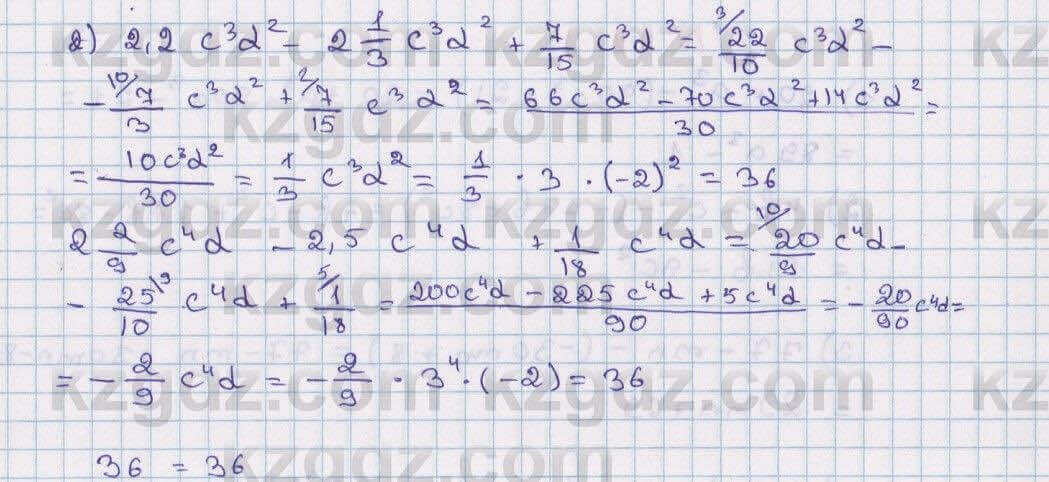 2) 2,2 c³d² - 2 1/3 c³d² + 7/15 c³d² = ³/22/10 c³d² -
- ¹⁰/7/3 c³d² + ²/7/15 c³d² = 66c³d² - 70c³d² + 14c³d²/30 =
= 10c³d²/30 = 1/3 c³d² = 1/3 · 3 · (-2)² = 36
2 2/9 c⁴d - 2,5 c⁴d + 1/18 c⁴d = ¹⁰/20/9 c⁴d -
- 25\⁹/10 c⁴d + ⁵/1/18 = 200c⁴d - 225c⁴d + 5c⁴d/90 = - 20/90 c⁴d =
= - 2/9 c⁴d = - 2/9 · 3⁴ · (-2) = 36
36 = 36
kzgdz.com